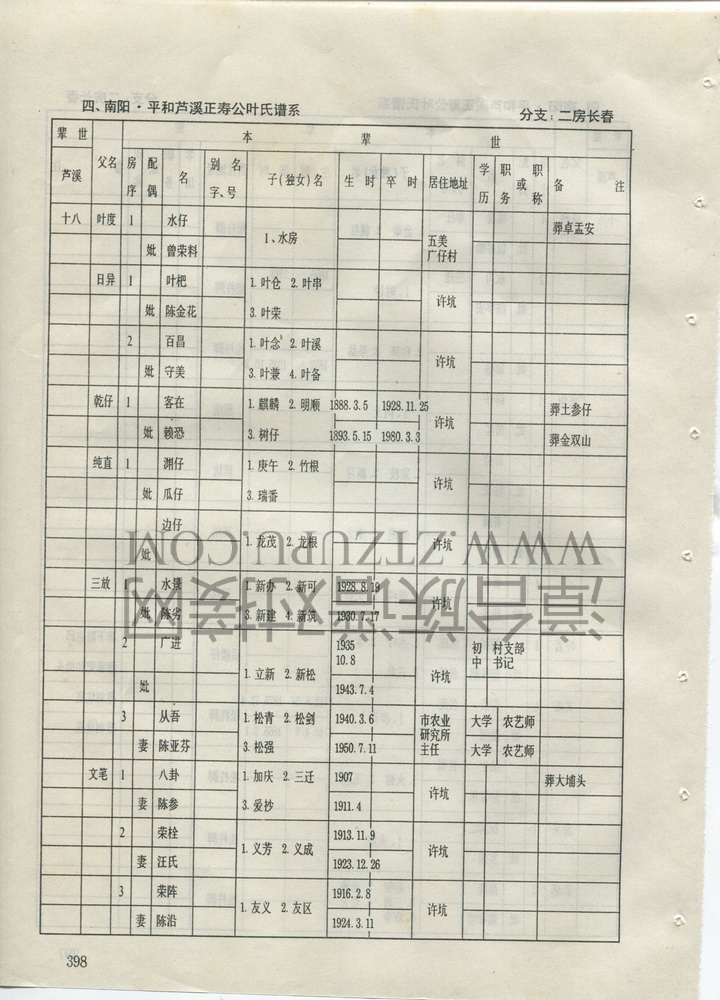 四、南阳·平和芦溪正寿公叶氏谱系 分支：二房长春
辈世 本 辈 世
芦溪 父名 房序 配偶 名 别名字、号 子(独女)名 生时 卒时 居住地址 学历 职务或职称 备注
十八 叶度 1 水仔 1、水房 五美广仔村 葬卓盂安
妣 曾荣料
日异 1 叶杷 1.叶仓 2.叶串 许坑
妣 陈金花 3.叶荣
2 百昌 1.叶念 2.叶溪 许坑
妣 守美 3.叶兼 4.叶备
乾仔 1 客在 1.麒麟 2.明顺 1888.3.5 1928.11.25 许坑 葬土参仔
妣 赖恐 3.树仔 1893.5.15 1980.3.3 葬金双山
纯直 1 渊仔 1.庚午 2.竹根 许坑
妣 瓜仔 3.瑞番
边仔 1.龙茂 2.龙根 许坑
妣
三放 1 水景 1.新办 2.新可 1928.8.19 许坑
妣 陈劣 3.新建 4.新筑 1930.7.17
2 广进 1.立新 2.新松 1935 10.8 许坑 初中 村支部书记
妣 1943.7.4
3 从吾 1.松青 2.松剑 1940.3.6 市农业研究所主任 大学 农艺师
妻 陈亚芬 3.松强 1950.7.11 大学 农艺师
文笔 1 八卦 1.加庆 2.三迁 1907 许坑 葬大埔头
妻 陈参 3.爱抄 1911.4
2 荣栓 1.义芳 2.义成 1913.11.9 许坑
妻 汪氏 1923.12.26
3 荣阵 1.友义 2.友区 1916.2.8 许坑
妻 陈沿 1924.3.11
398
漳台族谱对接网
WWW.ZTZUPU.COM